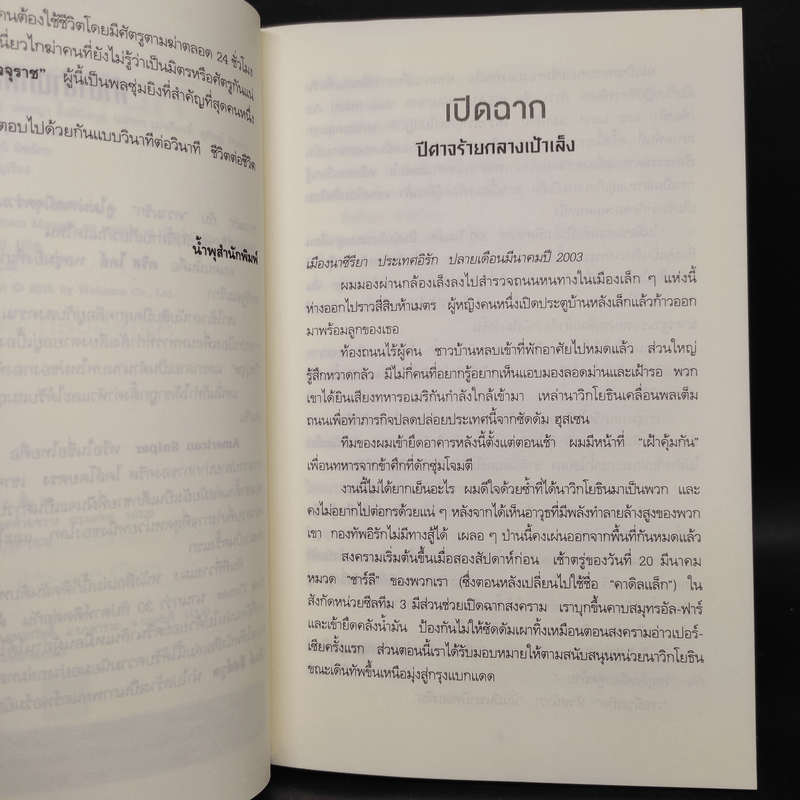 คนต้องใช้ชีวิตโดยมีศัตรูตามฆ่าตลอด 24 ชั่วโมง
นี่ยวไกฆ่าคนที่ยังไม่รู้ว่าเป็นมิตรหรือศัตรูกันแน่
จจุราช" ผู้นี้เป็นพลซุ่มยิงที่สำคัญที่สุดคนหนึ่ง
ตอบไปด้วยกันแบบวินาทีต่อวินาที ชีวิตต่อชีวิต
น้ำพุสำนักพิมพ์
เปิดฉาก
ปีศาจร้ายกลางเป้าเล็ง
เมืองนาซีรียา ประเทศอิรัก ปลายเดือนมีนาคมปี 2003
ผมมองผ่านกล้องเล็งลงไปสำรวจถนนหนทางในเมืองเล็ก ๆ แห่งนี้
ห่างออกไปราวสี่สิบห้าเมตร ผู้หญิงคนหนึ่งเปิดประตูบ้านหลังเล็กแล้วก้าวออก
มาพร้อมลูกของเธอ
ท้องถนนไร้ผู้คน ชาวบ้านหลบเข้าที่พักอาศัยไปหมดแล้ว ส่วนใหญ่
รู้สึกหวาดกลัว มีไม่กี่คนที่อยากรู้อยากเห็นแอบมองลอดม่านและเฝ้ารอ พวก
เขาได้ยินเสียงทหารอเมริกันกำลังใกล้เข้ามา เหล่านาวิกโยธินเคลื่อนพลเต็ม
ถนนเพื่อทำภารกิจปลดปล่อยประเทศนี้จากซัดดัม ฮุสเซน
ทีมของผมเข้ายึดอาคารหลังนี้ตั้งแต่ตอนเช้า ผมมีหน้าที่ "เฝ้าคุ้มกัน"
เพื่อนทหารจากข้าศึกที่ดักซุ่มโจมตี
งานนี้ไม่ได้ยากเย็นอะไร ผมดีใจด้วยซ้ำที่ได้นาวิกโยธินมาเป็นพวก และ
คงไม่อยากไปต่อกรด้วยแน่ ๆ หลังจากได้เห็นอาวุธที่มีพลังทำลายล้างสูงของพวก
เขา กองทัพอิรักไม่มีทางสู้ได้ เผลอ ๆ ป่านนี้คงเผ่นออกจากพื้นที่กันหมดแล้ว
สงครามเริ่มต้นขึ้นเมื่อสองสัปดาห์ก่อน เช้าตรู่ของวันที่ 20 มีนาคม
หมวด "ชาร์ลี" ของพวกเรา (ซึ่งตอนหลังเปลี่ยนไปใช้ชื่อ "คาดิลแล็ก") ใน
สังกัดหน่วยซีลทีม 3 มีส่วนช่วยเปิดฉากสงคราม เราบุกขึ้นคาบสมุทรอัล-ฟาร์
และเข้ายึดคลังน้ำมัน ป้องกันไม่ให้ซัดดัมเผาทิ้งเหมือนตอนสงครามอ่าวเปอร์-
เซียครั้งแรก ส่วนตอนนี้เราได้รับมอบหมายให้ตามสนับสนุนหน่วยนาวิกโยธิน
ขณะเดินทัพขึ้นเหนือมุ่งสู่กรุงแบกแดด